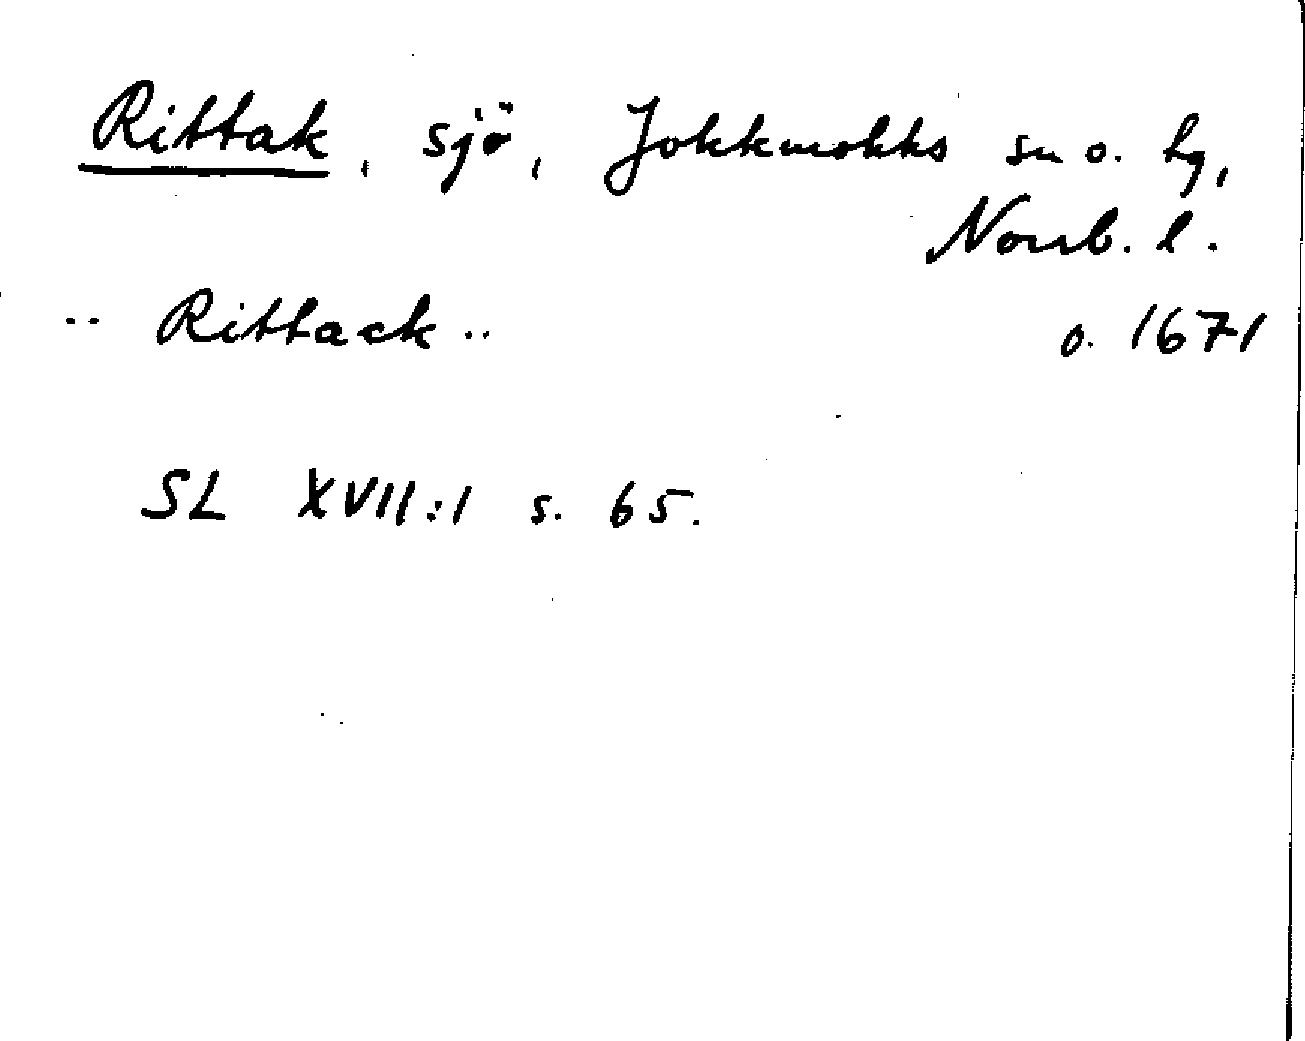 Rittak, sjö, Jokkmokks sn o. hg,
Norrb. l.
.. Rittack .. o. 1671
SL XVII:1 s. 65.